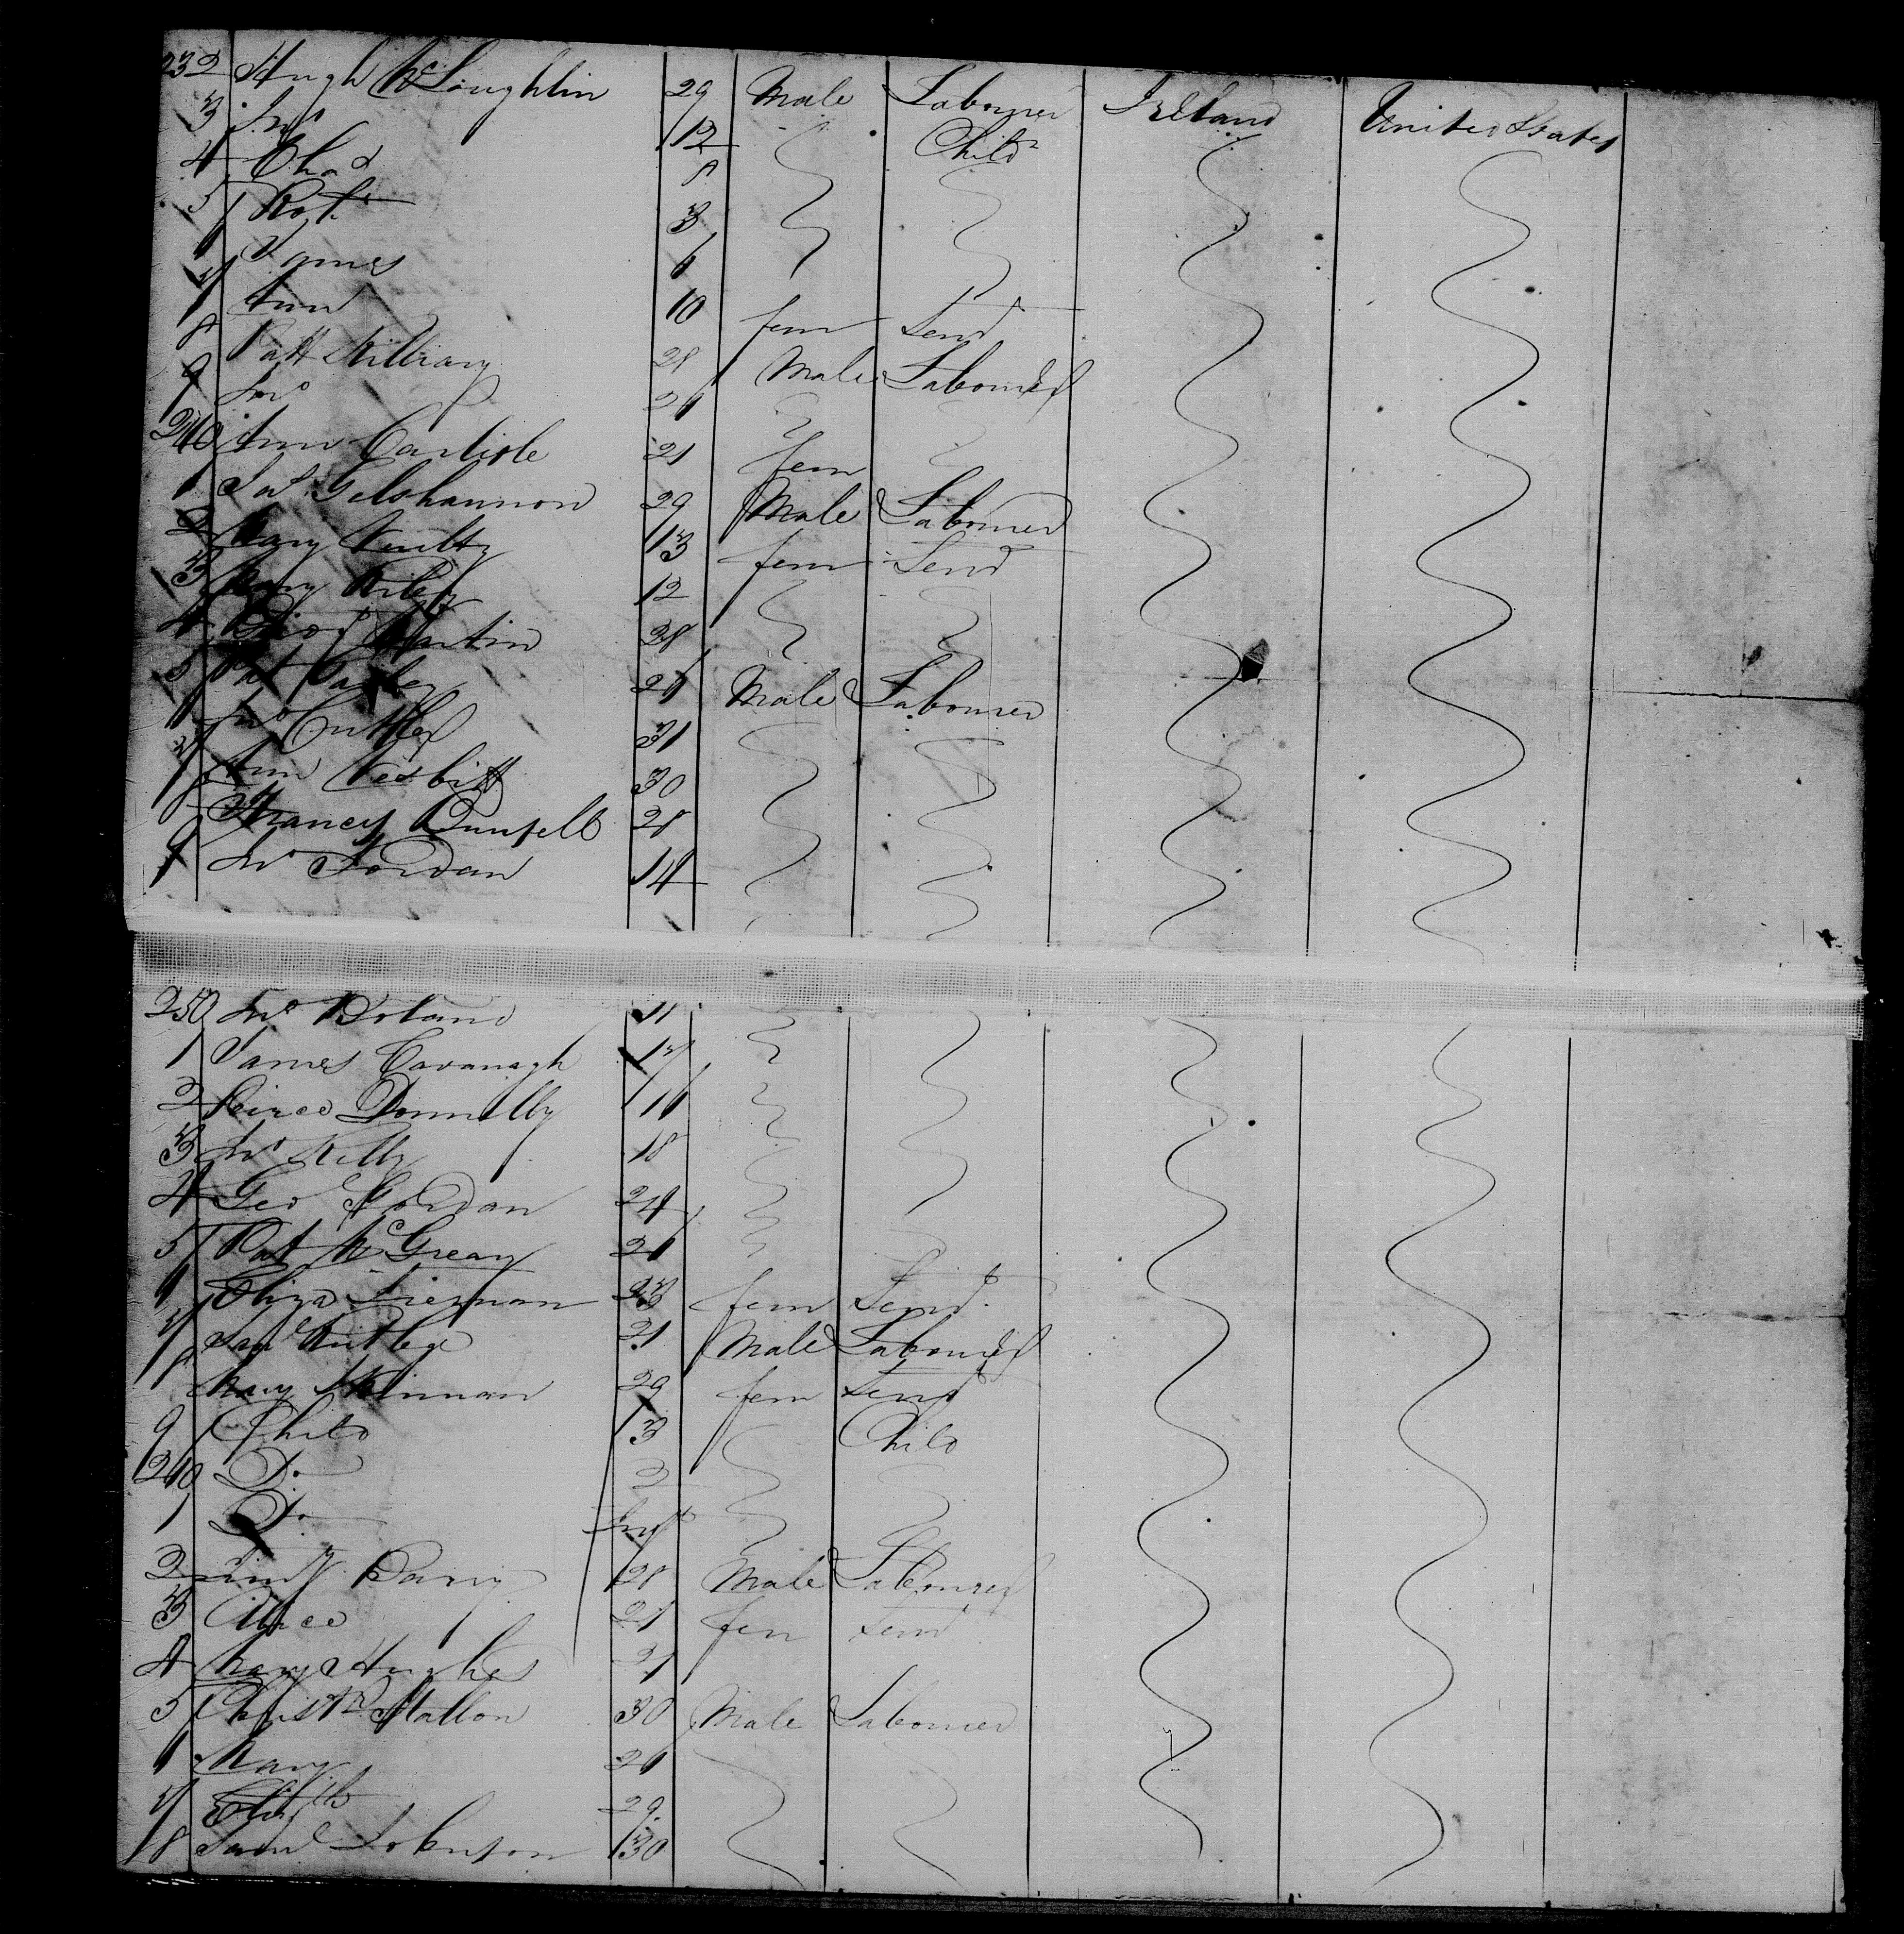 232 Hugh McLoughlin 29 Male Labourer Ireland United States
3 Jno 12 Child
4 Chas 8
5 Robt 3
6 James 6
7 Ann 10 fem Servt
8 Patt Killiany 28 Male Labourer
9 Jno 26
240 Ann Carlisle 21 fem
1 Jas Gelshannon 29 Male Labourer
2 Mary 13 fem Servt
3 Mary Riley 12
4 Martin 38
5 Pat 26 Male Labourer
6 Jno Cuttler 31
7 Ann Nesbitt 30
8 Francis 28
9 Jno Jordan 14
250 Jno Boland 11
1 James Cavanagh 17
2 Peirce Donnelly 16
3 Jno Kelly 18
4 Geo Jordan 24
5 Pat McGreay 26
6 Eliza Tiernan 23 fem Servt
7 Saml Rutlege 21 Male Labourer
8 Mary Kinnan 29 fem Servt
9 Child 3 Child
260 Do 2
1 Do Inft
2 Barry 28 Male Labourer
3 Alice 21 fem Servt
4 Mary Hughes 21
5 Christr Stallon 30 Male Labourer
6 Mary 26
7 Elizth 29
8 Saml Johnson 30